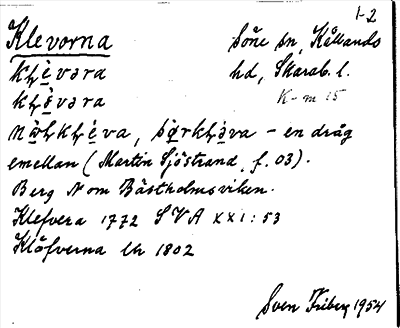 1-2
Klevorna Söne sn, Kållands
kḷè̱vəra hd, Skarab. l.
kḷö̀vəra K-m 15
nɷ̀ḷkḷé̱va, sø̀rkḷə́va – en dråg
emellan (Martin Sjöstrand, f. 03).
Berg N om Båstholmsviken.
Klefvera 1772 SVA XXI: 53
Klöfverna lk 1802
Sven Friberg 1954